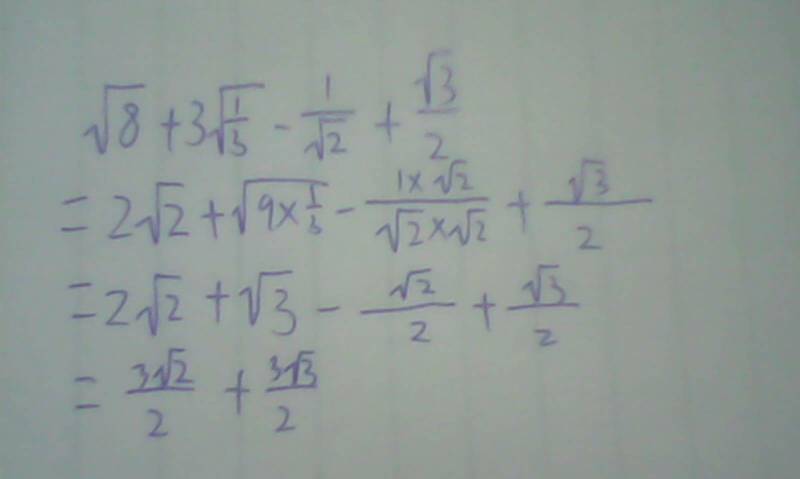 √8 + 3√(1/3) - 1/√2 + √3/2
= 2√2 + √(9×1/3) - (1×√2)/(√2×√2) + √3/2
= 2√2 + √3 - √2/2 + √3/2
= 3√2/2 + 3√3/2